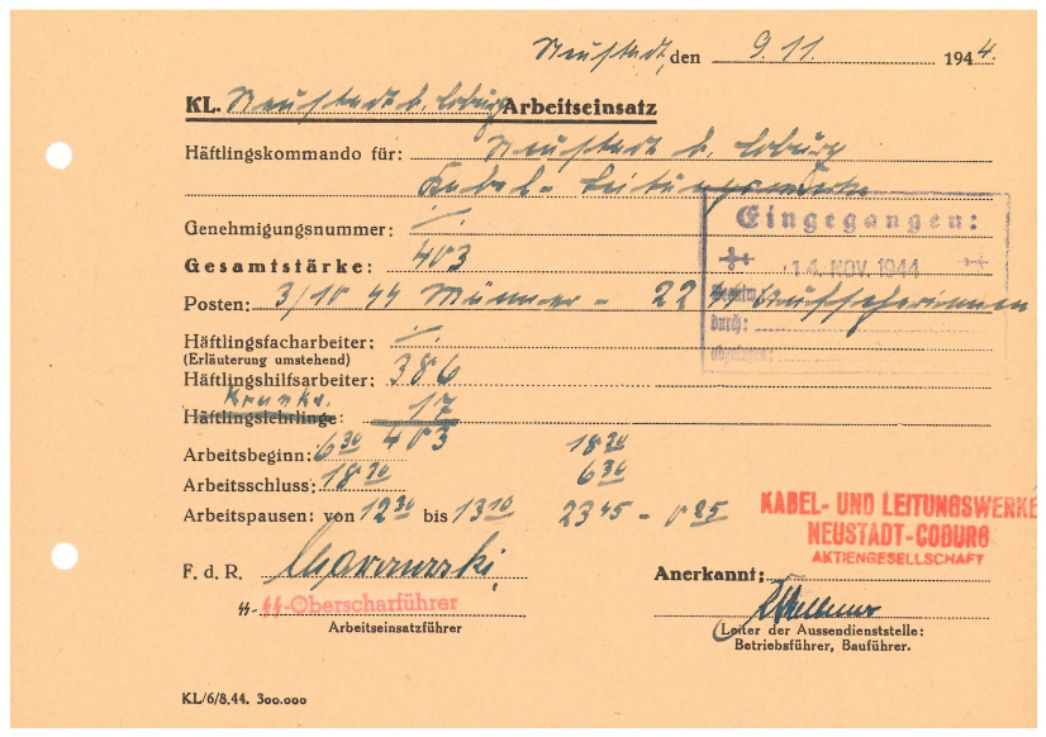 Neustadt, den 9. 11. 1944.
KL. Neustadt b. Coburg Arbeitseinsatz
Häftlingskommando für: Neustadt b. Coburg
Kabel- Leitungswerke
Genehmigungsnummer: ./.
Eingegangen:
Gesamtstärke: 403
14. NOV. 1944
Posten: 3/10 SS Männer - 22 SS Aufseherinnen
durch:
Häftlingsfacharbeiter: ./.
(Erläuterung umstehend)
Häftlingshilfsarbeiter: 386
Kranke.
Häftlingslehrlinge: 17
403
Arbeitsbeginn: 6 30 18 30
Arbeitsschluss: 18 30 6 30
Arbeitspausen: von 12 30 bis 13 10 23 45 - 0 25
KABEL- UND LEITUNGSWERKE
NEUSTADT-COBURG
AKTIENGESELLSCHAFT
F. d. R.
Anerkannt:
SS- SS-Oberscharführer
Arbeitseinsatzführer
Leiter der Aussendienststelle:
Betriebsführer, Bauführer.
KL/6/8.44. 300.000